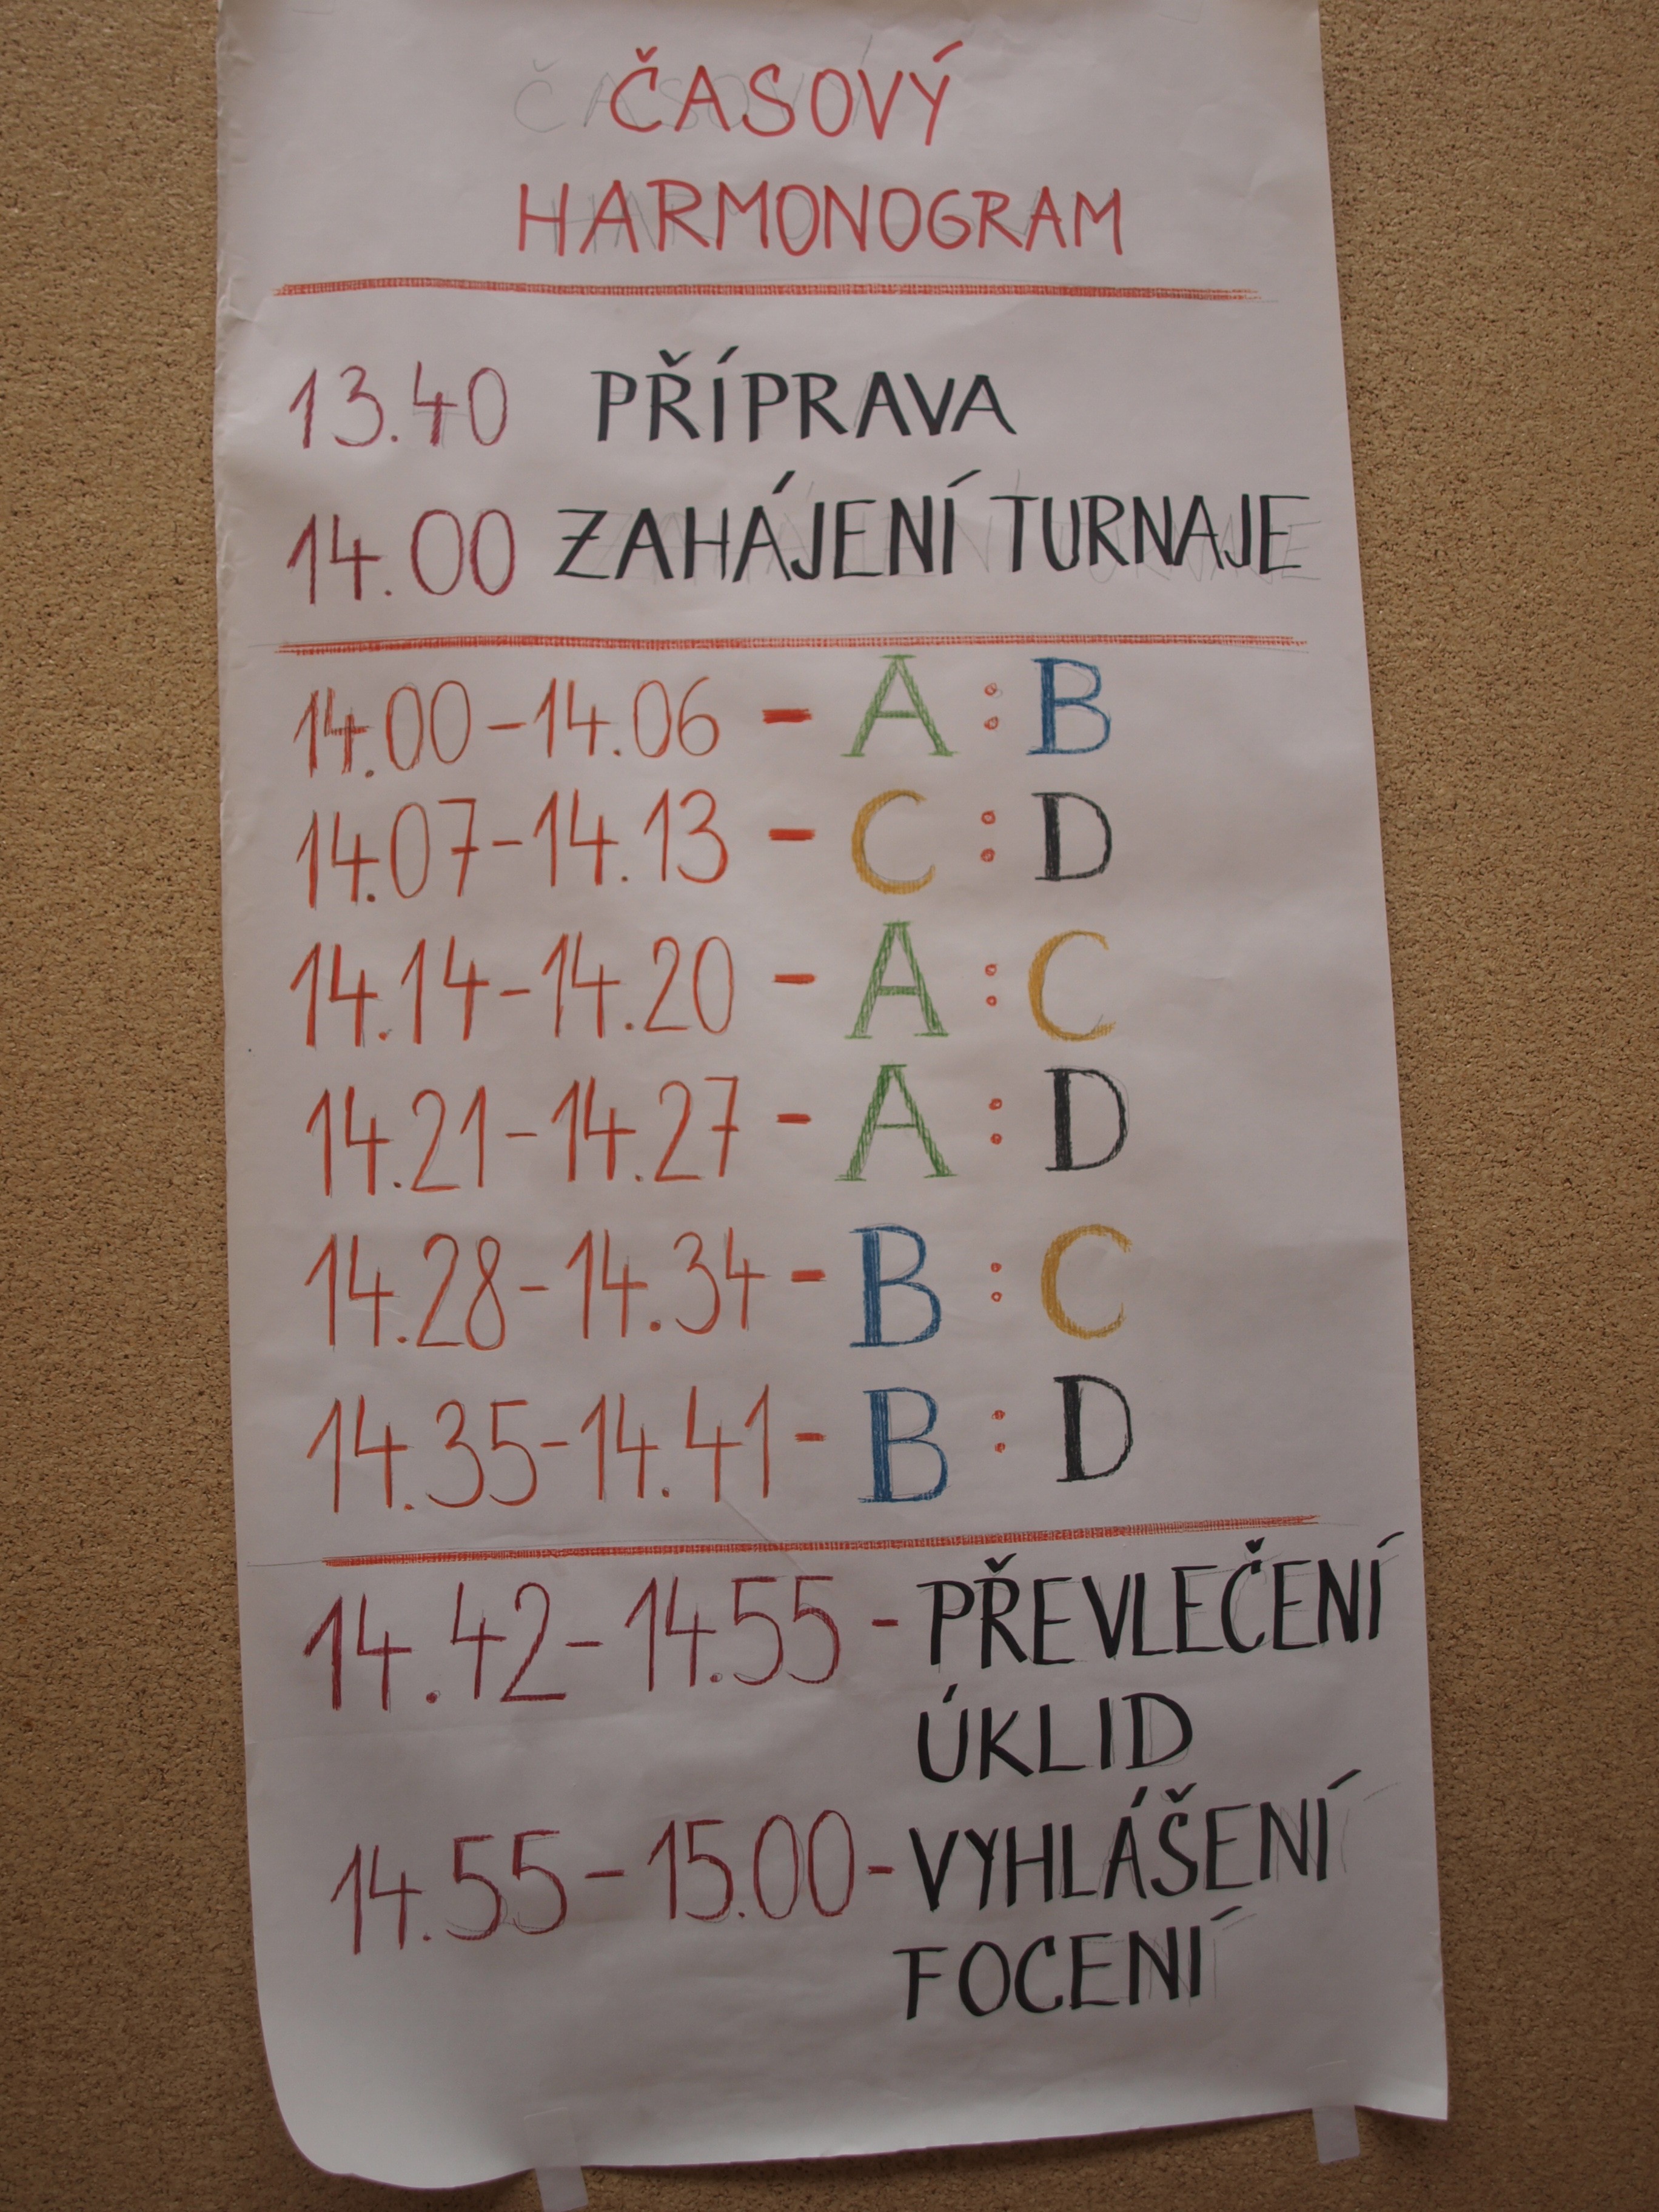 ČASOVÝ
HARMONOGRAM
13.40 PŘÍPRAVA
14.00 ZAHÁJENÍ TURNAJE
14.00-14.06 - A : B
14.07-14.13 - C : D
14.14-14.20 - A : C
14.21-14.27 - A : D
14.28-14.34 - B : C
14.35-14.41 - B : D
14.42-14.55 - PŘEVLEČENÍ
ÚKLID
14.55-15.00 - VYHLÁŠENÍ
FOCENÍ